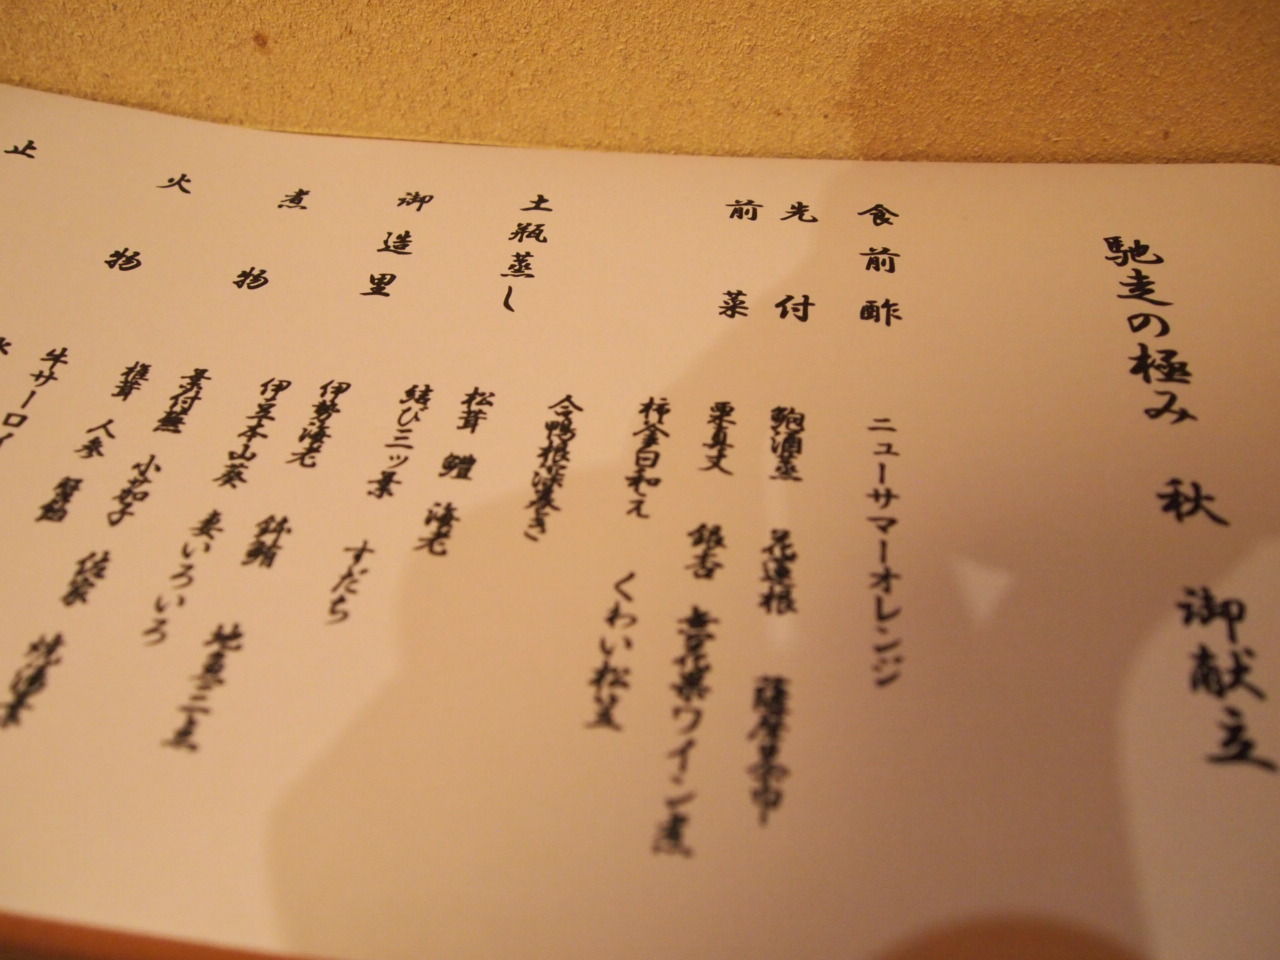 馳走の極み 秋 御献立
食前酢 ニューサマーオレンジ
先付 鮑酒蒸 花蓮根 薩摩
前菜 栗真丈 銀杏 無花果ワイン煮
柿金白和え くわい松笠
合鴨根深巻き
土瓶蒸し 松茸 鱧 海老
結び三ッ葉 すだち
御造里 伊勢海老 鉢鮪 地魚二点
伊豆本山葵 妻いろいろ
煮物 葉付蕪 小茄子
椎茸 人参 蟹餡
火物 牛サーロイ
止